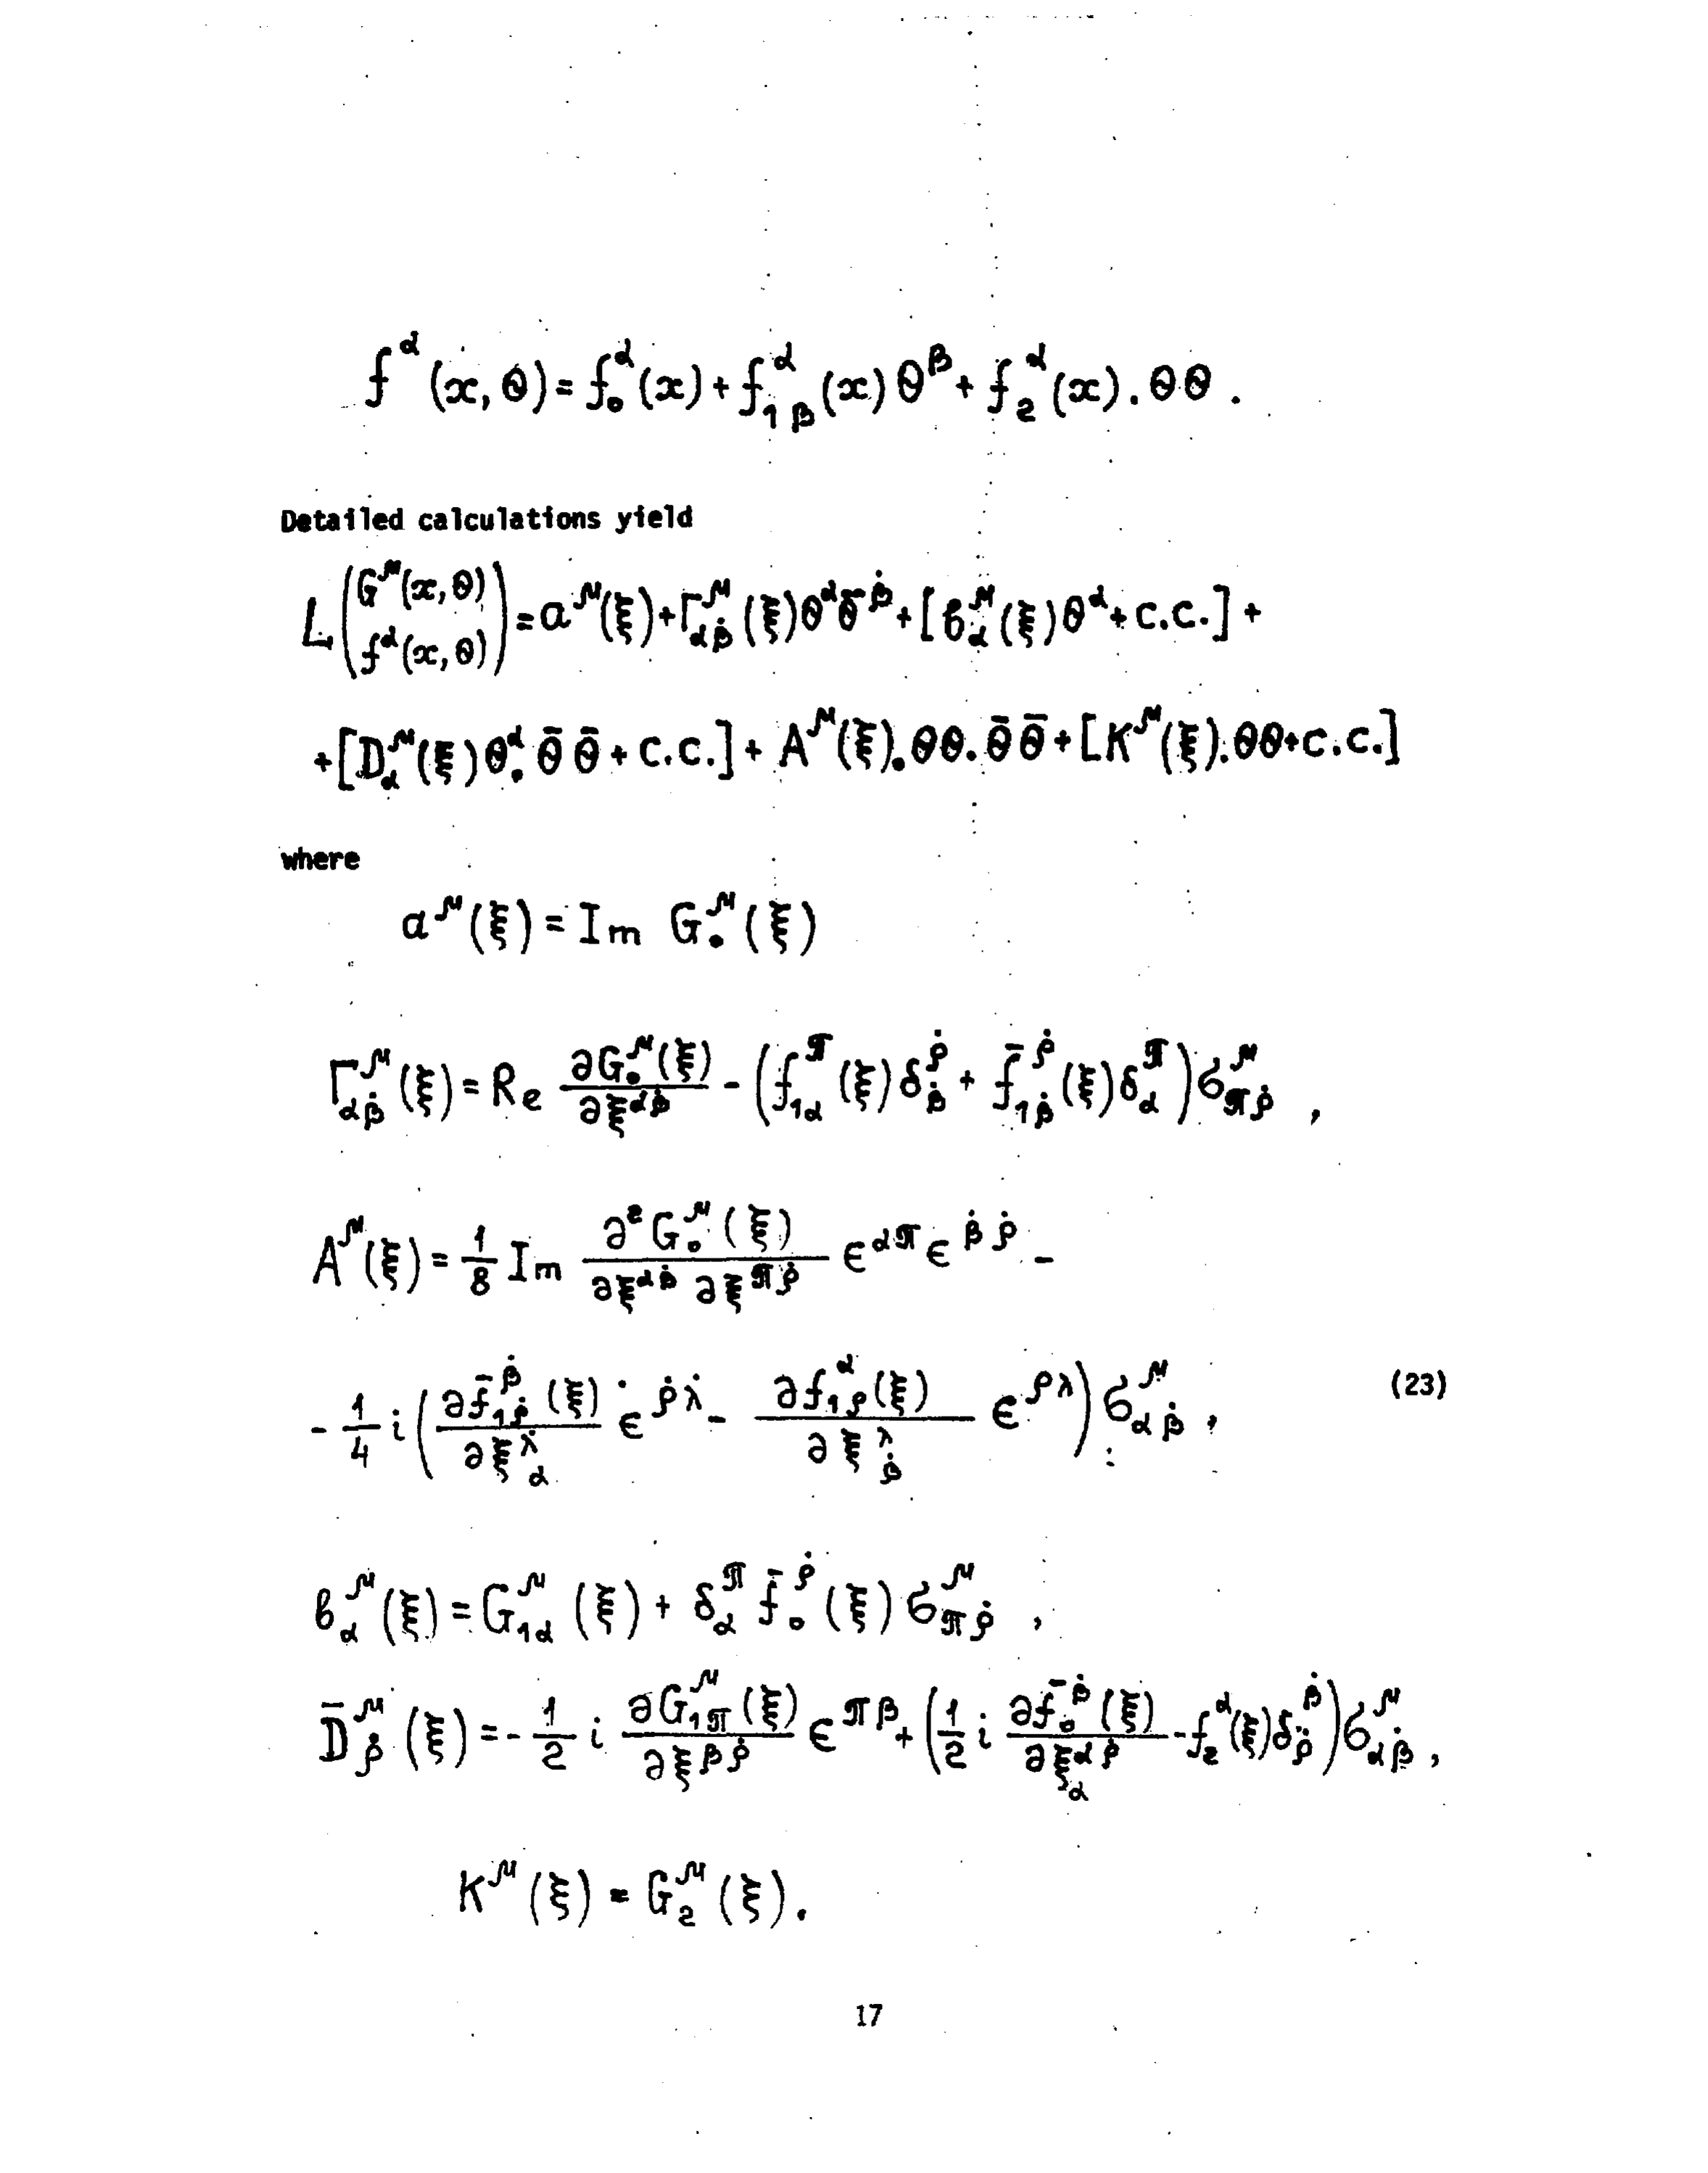 f^α (x, θ) = f_0^α(x) + f_{1β}^α(x) θ^β + f_2^α(x).θθ .
Detailed calculations yield
L (G^μ(x,θ) / f^α(x,θ)) = a^μ(ξ) + Γ^μ_{αβ̇}(ξ)θ^α θ̄^β̇ + [б^μ_α(ξ)θ^α + c.c.] +
+[D^μ_α(ξ)θ^α. θ̄ θ̄ + c.c.] + A^μ(ξ).θθ.θ̄ θ̄ + [K^μ(ξ).θθ+c.c.]
where
a^μ(ξ) = Im G_0^μ(ξ)
Γ^μ_{αβ̇}(ξ) = Re ∂G_0^μ(ξ)/∂ξ^{αβ̇} - (f_{1α}^π(ξ) δ_β̇^ρ̇ + f̄_{1β̇}^ρ̇(ξ) δ_α^π) σ^μ_{πρ̇} ,
A^μ(ξ) = 1/8 Im ∂²G_0^μ(ξ)/∂ξ^{αβ̇} ∂ξ^{πρ̇} ε^{απ} ε^{β̇ρ̇} -
- 1/4 i (∂f̄_{1ρ̇}^β̇(ξ)/∂ξ^λ̇_α ε^{ρ̇λ̇} - ∂f_{1ρ}^α(ξ)/∂ξ^λ_β̇ ε^{ρλ}) σ^μ_{αβ̇} , (23)
б_α^μ(ξ) = G_{1α}^μ(ξ) + δ_α^π f̄_0^ρ̇(ξ) σ^μ_{πρ̇} ,
D̄_ρ̇^μ(ξ) = - 1/2 i ∂G_{1π}^μ(ξ)/∂ξ^{βρ̇} ε^{πβ} + (1/2 i ∂f̄_0^β̇(ξ)/∂ξ_α^{αρ̇} - f_2^α(ξ) δ_ρ̇^β̇) σ^μ_{αβ̇} ,
K^μ(ξ) = G_2^μ(ξ).
17